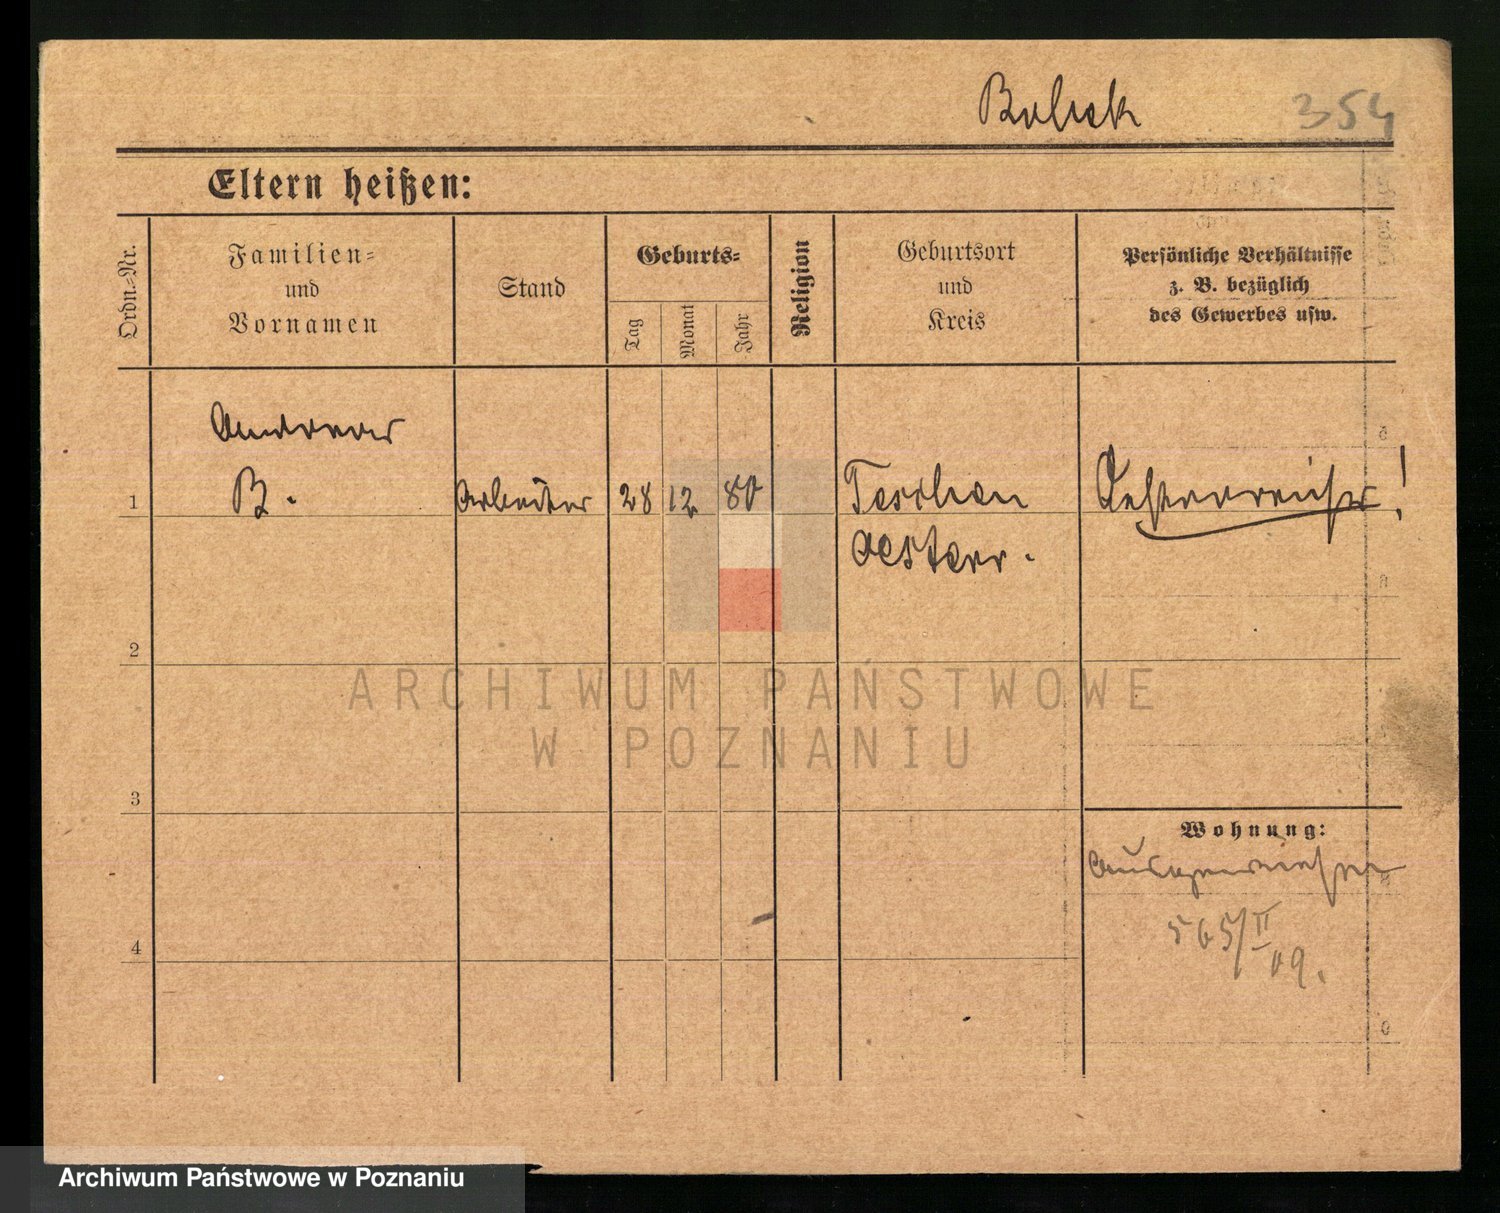 Bolek 354
Eltern heißen:
Ordn.-Nr.
Familien-
und
Vornamen
Stand
Geburts-
Tag
Monat
Jahr
Religion
Geburtsort
und
Kreis
Persönliche Verhältnisse
z. B. bezüglich
des Gewerbes usw.
Andreas
1 B. Arbeiter 28 12 80 Teschen Oesterreicher!
Oesterr.
2
3
4
Wohnung:
Ausgewiesen
565/II
09.
ARCHIWUM PAŃSTWOWE
W POZNANIU
Archiwum Państwowe w Poznaniu